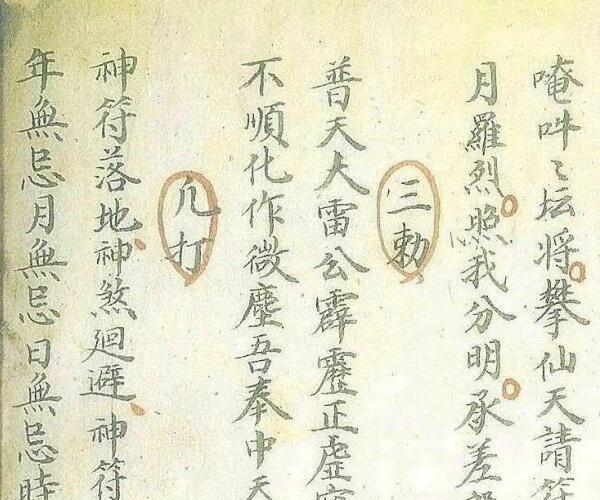 唵吽〻坛将攀仙天請符
月羅烈照我分明承差
三勅
普天大雷公霹靂正虚空
不順化作微塵吾奉中天
几打
神符落地神煞廻避神符
年無忌月無忌日無忌時